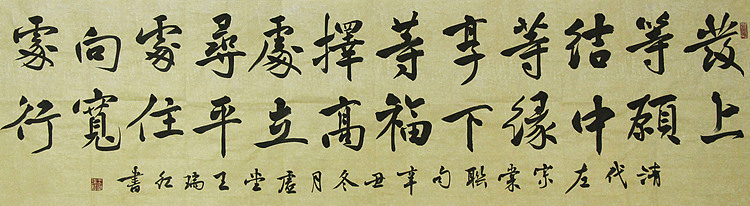 發上
等願
結中
等緣
享下
等福
擇高
處立
尋平
處住
向寬
處行
清代左宗棠聯句辛丑冬月虛堂王瑞紅書